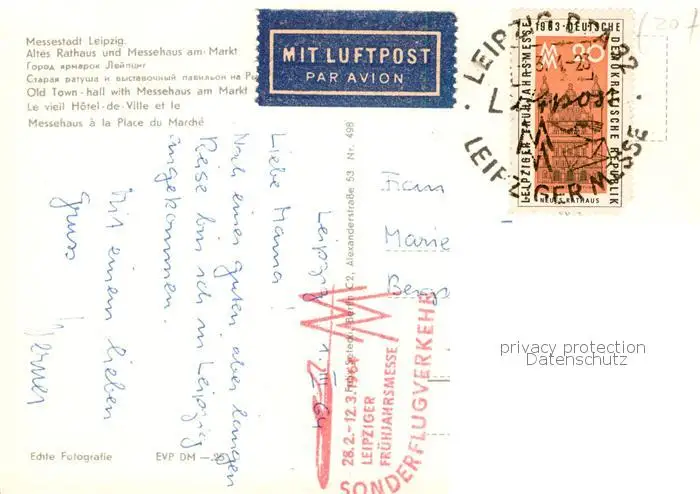 Messestadt Leipzig.
Altes Rathaus und Messehaus am Markt
Город ярмарок Лейпциг
Старая ратуша и выставочный павильон на
Old Town-hall with Messehaus am Markt
Le vieil Hôtel-de-Ville et le
Messehaus à la Place du Marché
MIT LUFTPOST
PAR AVION
LEIPZIG
LEIPZIGER MESSE
1963 DEUTSCHE
DEMOKRATISCHE REPUBLIK
LEIPZIGER FRÜHJAHRSMESSE
20
NEUES RATHAUS
Leipzig 1.III.64
Liebe Mama
Nach einer guten aber langen
Reise bin ich in Leipzig
angekommen.
Mit einem lieben
Gruss
Werner
Berlin C2, Alexanderstraße 53 Nr. 498
Frau
Marie
28.2.–12.3.
LEIPZIGER
FRÜHJAHRSMESSE
SONDERFLUGVERKEHR
Echte Fotografie EVP DM
privacy protection
Datenschutz